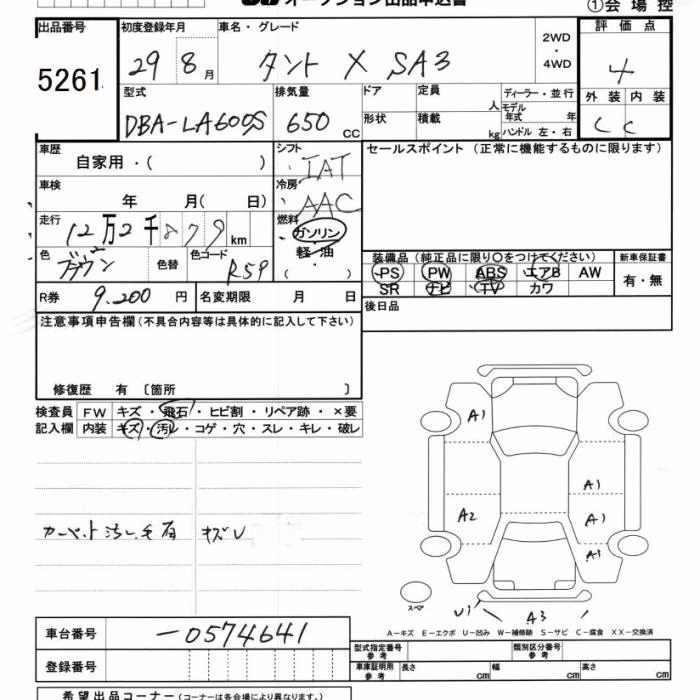 オークション出品申込書
①会場控
出品番号 初度登録年月 車名・グレード 2WD・4WD 評価点
5261 29 8月 タント X SA3 4
型式 排気量 ドア 定員 人 ディーラー・並行 外装 内装
DBA-LA600S 650 cc 形状 積載 kg モデル年式 年 ハンドル 左・右 C C
車歴 自家用・( ) シフト IAT セールスポイント(正常に機能するものに限ります)
車検 年 月( 日) 冷房 AAC
走行 12万2千879km 燃料 ガソリン・軽油 ( ・ )
色 ブラウン 色替 色コード R59
装備品(純正品に限り○をつけてください) 新車保証書
PS PW ABS エアB AW 有・無
SR ナビ TV カワ
R券 9.200円 名変期限 月 日 後日品
注意事項申告欄(不具合内容等は具体的に記入して下さい)
修復歴 有 〔箇所 〕
検査員 FW キズ・飛石・ヒビ割・リペア跡・×要
記入欄 内装 キズ・汚レ・コゲ・穴・スレ・キレ・破レ
A1
A1
A2 A1
A1
カーペット汚レ毛有 キズU
スペア U1 A3
A-キズ E-エクボ U-凹み W-補修跡 S-サビ C-腐食 XX-交換済
車台番号 -0574641
型式指定番号 参考 類別区分番号 参考
登録番号 車庫証明用 参考 長さ cm 幅 cm 高さ cm
希望出品コーナー(コーナーは各会場により異なります。)